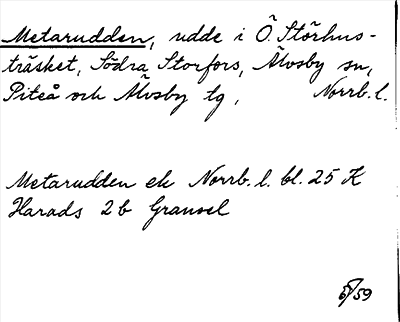 Metarudden, udde i Ö. Störhus-
träsket, Södra Storfors, Älvsby sn,
Piteå och Älvsby tg, Norrb. l.
Metarudden ek Norrb. l. bl. 25 K
Harads 2b Gransel
/59